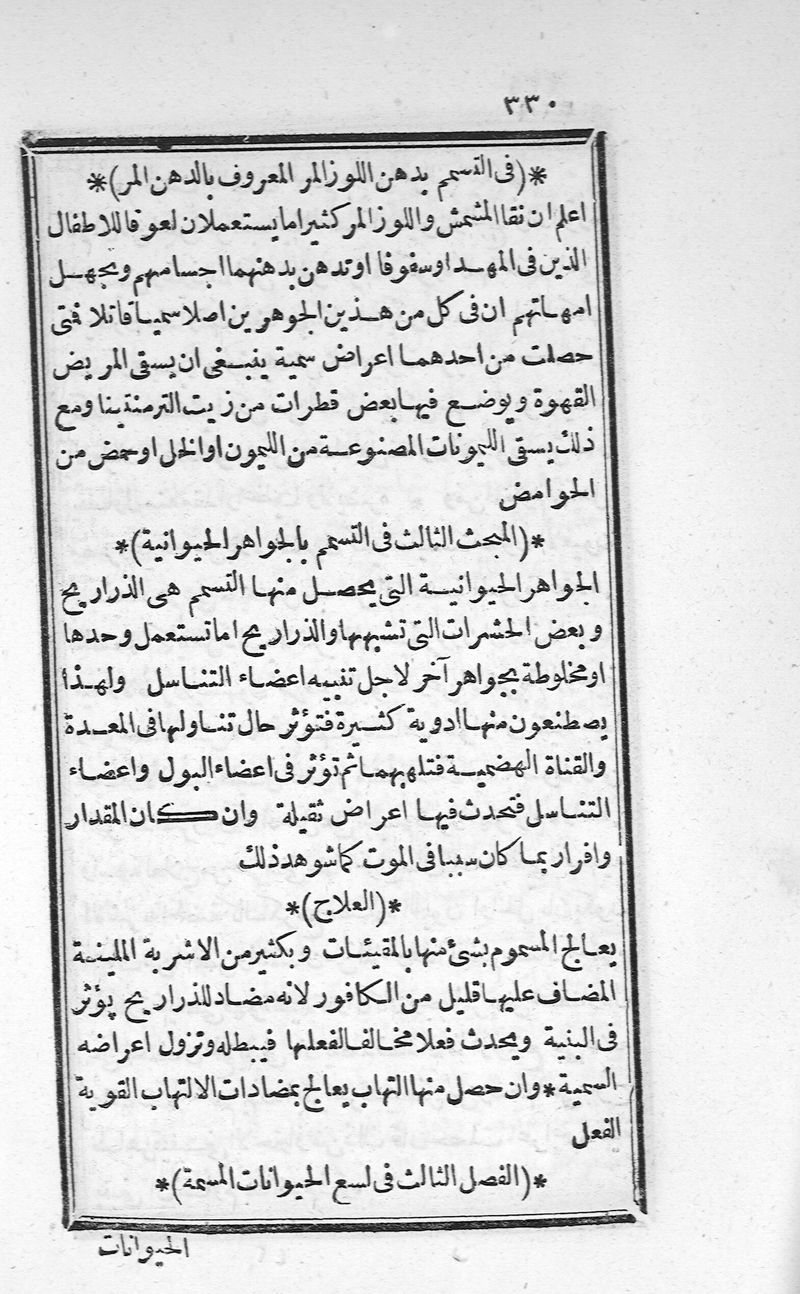 ٣٣٠
*(فى التسمم بدهن اللوز المر المعروف بالدهن المر)*
اعلم ان نقا المشمش واللوز المر كثيرا ما يستعملان لعوقا للاطفال
الذين فى المهد او سفوفا او تدهن بدهنهما اجسامهم ويجهل
امهاتهم ان فى كل من هذين الجوهرين اصلا سميا قاتلا فتى
حصلت من احدهما اعراض سمية ينبغى ان يسقى المريض
القهوة ويوضع فيها بعض قطرات من زيت الترمنتينا ومع
ذلك يسقى الليمونات المصنوعة من الليمون او الخل او حمض من
الحوامض
*(المبحث الثالث فى التسمم بالجواهر الحيوانية)*
الجواهر الحيوانية التى يحصل منها التسمم هى الذراريح
وبعض الحشرات التى تشبهها والذراريح اما تستعمل وحدها
او مخلوطة بجواهر آخر لاجل تنبيه اعضاء التناسل ولهذا
يصطنعون منها ادوية كثيرة فتؤثر حال تناولها فى المعدة
والقناة الهضمية فتلهبهما ثم تؤثر فى اعضاء البول واعضاء
التناسل فتحدث فيها اعراض ثقيلة وان كان المقدار
وافرا ربما كان سببا فى الموت كما شوهد ذلك
*(العلاج)*
يعالج المسموم بشئ منها بالمقيئات وبكثير من الاشربة الملينة
المضاف عليها قليل من الكافور لانه مضاد للذراريح يؤثر
فى البنية ويحدث فعلا مخالفا لفعلها فيبطله وتزول اعراضه
السمية * وان حصل منها التهاب يعالج بمضادات الالتهاب القوية
الفعل
*(الفصل الثالث فى لسع الحيوانات المسمة)*
الحيوانات